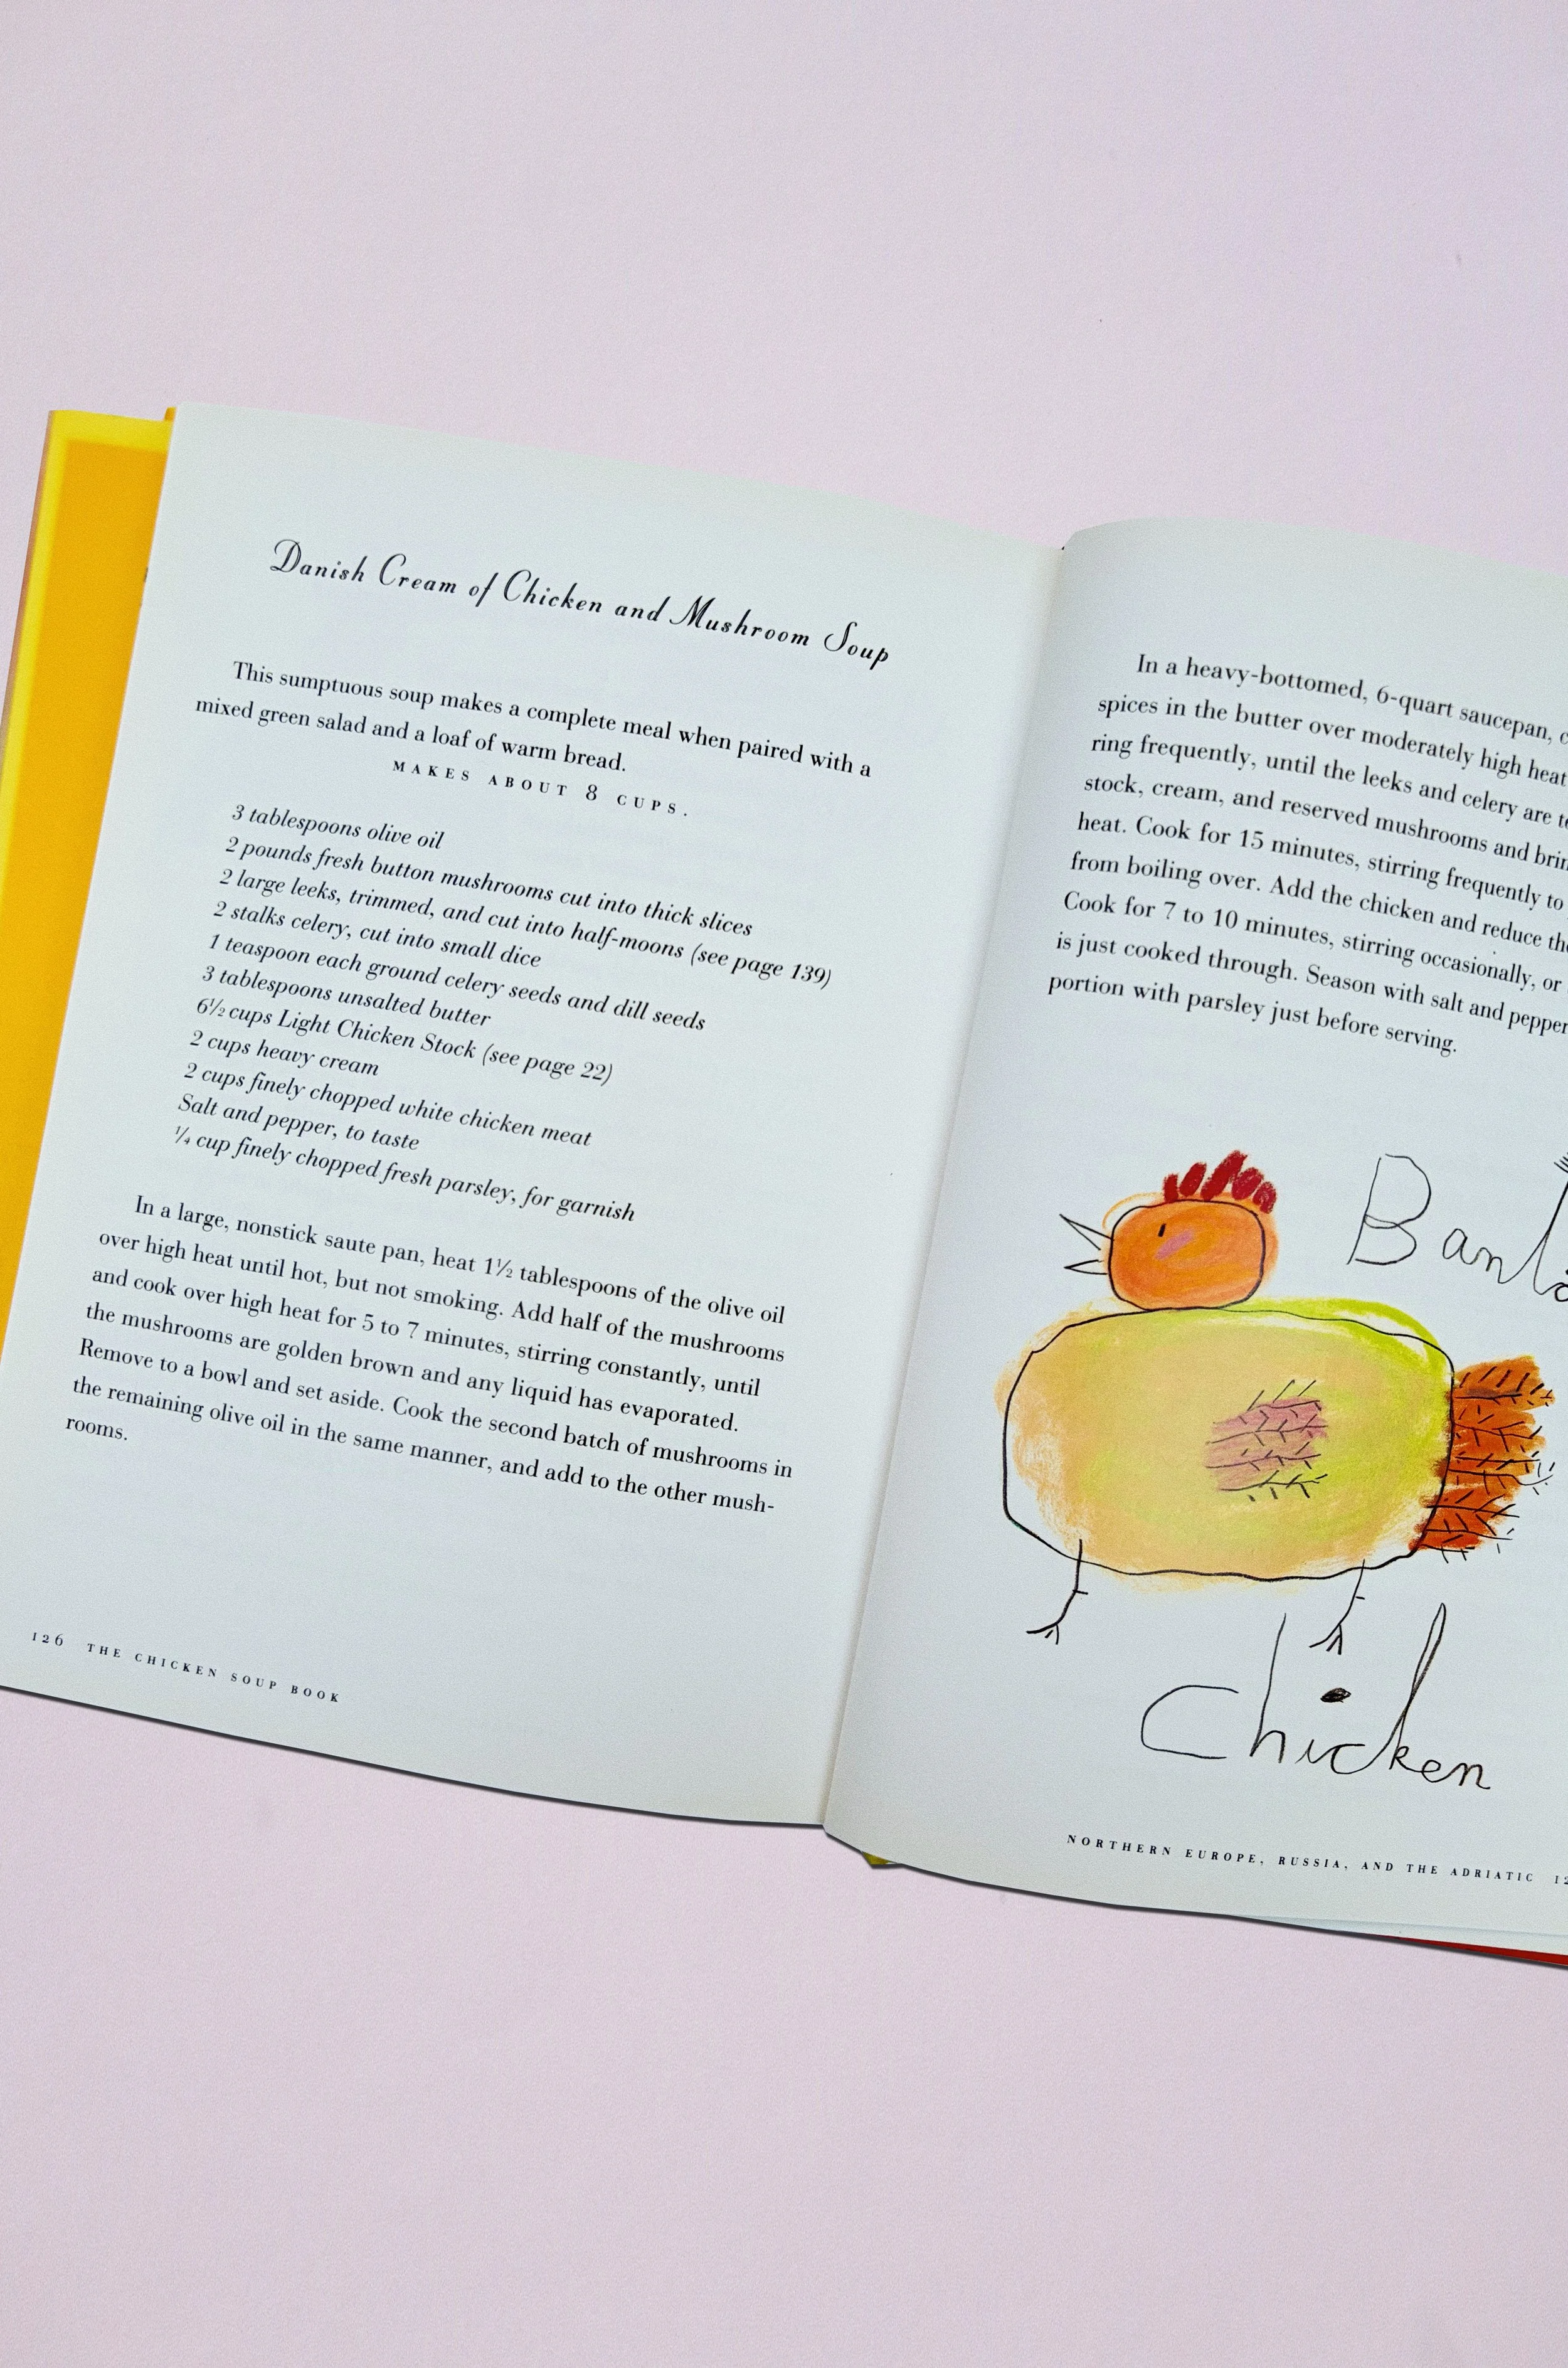 Danish Cream of Chicken and Mushroom Soup
This sumptuous soup makes a complete meal when paired with a
mixed green salad and a loaf of warm bread.
MAKES ABOUT 8 CUPS.
3 tablespoons olive oil
2 pounds fresh button mushrooms cut into thick slices
2 large leeks, trimmed, and cut into half-moons (see page 139)
2 stalks celery, cut into small dice
1 teaspoon each ground celery seeds and dill seeds
3 tablespoons unsalted butter
6½ cups Light Chicken Stock (see page 22)
2 cups heavy cream
2 cups finely chopped white chicken meat
Salt and pepper, to taste
¼ cup finely chopped fresh parsley, for garnish
In a large, nonstick saute pan, heat 1½ tablespoons of the olive oil
over high heat until hot, but not smoking. Add half of the mushrooms
and cook over high heat for 5 to 7 minutes, stirring constantly, until
the mushrooms are golden brown and any liquid has evaporated.
Remove to a bowl and set aside. Cook the second batch of mushrooms in
the remaining olive oil in the same manner, and add to the other mush-
rooms.
126 THE CHICKEN SOUP BOOK
In a heavy-bottomed, 6-quart saucepan,
spices in the butter over moderately high heat
ring frequently, until the leeks and celery are
stock, cream, and reserved mushrooms and
heat. Cook for 15 minutes, stirring frequently to
from boiling over. Add the chicken and reduce
Cook for 7 to 10 minutes, stirring occasionally, or
is just cooked through. Season with salt and pepper
portion with parsley just before serving.
Chicken
NORTHERN EUROPE, RUSSIA, AND THE ADRIATIC